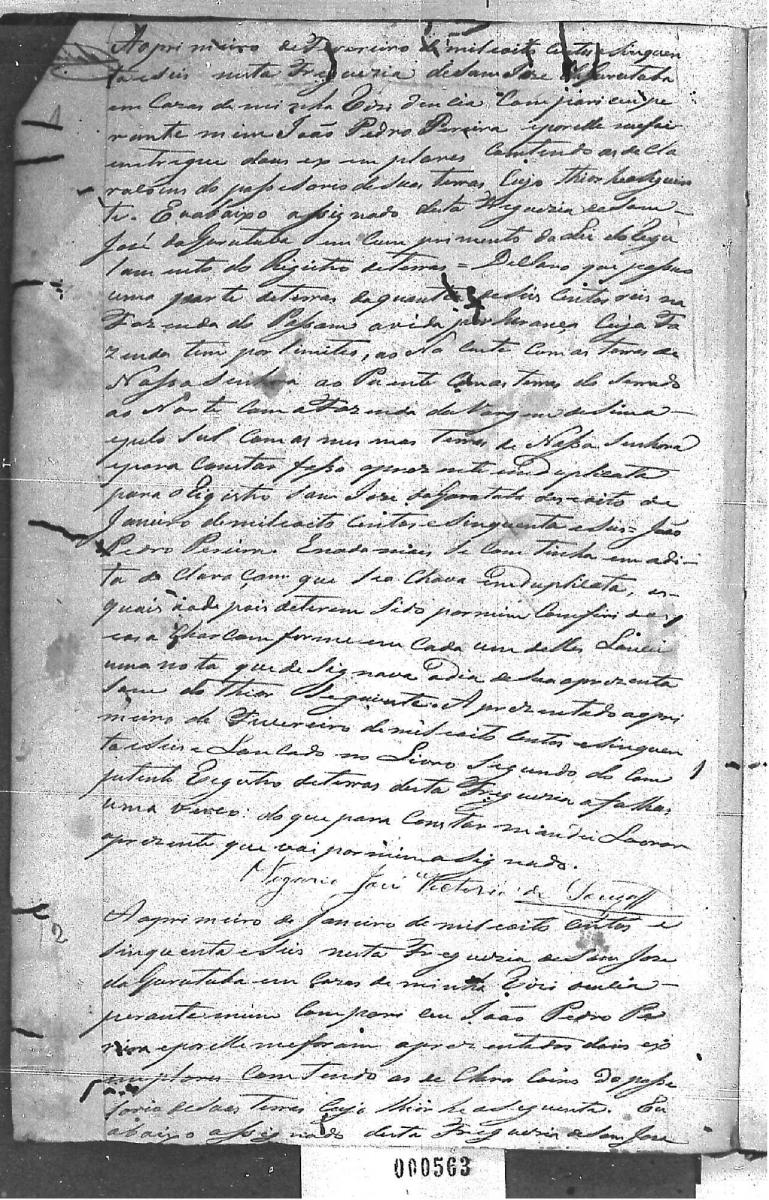 Ao primeiro de Fevereiro de mil oito centos e sinquen
ta e seis nesta Freguezia de Sam Jose da Guratuba
em Cazas de minha Rezidencia Compareceu pe
rante mim João Pedro Pereira e por elle me foi
entregue dous exemplares Contendo as decla
racoins do possesorio de suas terras Cujo thior he o seguin
te. Eu abaixo assignado desta Freguezia de Sam
José da Guratuba em Cumprimento da Lei do Regu
lamento do Registro de terras = Declaro que posso
uma parte de terras da quantia de Seis Centos reis na
Fazenda do avida por herança Cuja Fa
zenda tem por limites, ao Nacente Com as terras de
Nossa Senhora ao Puente Com as terras do Serrado
ao Norte Com a Fazenda da Vargem de Sima
e pulo Sul Com as mesmas terras de Nossa Senhora
e para Constar fasso a prezente em Duplicata
para o Rigistro Sam Jose da Guratuba desoito de
Janeiro de mil oito Centos e Sinquenta e Seis = João
Pedro Pereira. E nada mais se Continha em a di
ta de Claraçam que se a Chava em Duplicata, os
quais de pois de terem Sido por mim Comfiridos
e os a Char Comforme em Cada um delles Lancei
uma nota que de Signava o dia de sua aprezenta
sam do thior Seguinte = Aprezentado ao pri
meiro de Fevereiro de mil oito Centos e Sinquen
ta e Seis e Lancado no Livro Segundo do Com
putente Registro de terras desta Freguezia a folhas
uma verço: do que para Constar mandei Lavrar
a prezente que vai por mim a Signado.
Vegario José Victorio de Souza
2
Ao primeiro de Janeiro de mil oito Centos e
Sinquenta e Seis nesta Freguezia de Sam Jose
da Guratuba em Cazas de minha Rezidencia
perante mim Compareceu João Pedro Pe
reira e por elle me foram aprezentados dois ex
emplares Comtendo as de Clara Coins do posse
sorio de Suas terras Cujo thior he o seguinte. Eu
abaixo assignado desta Freguezia de Sam Jose
000563